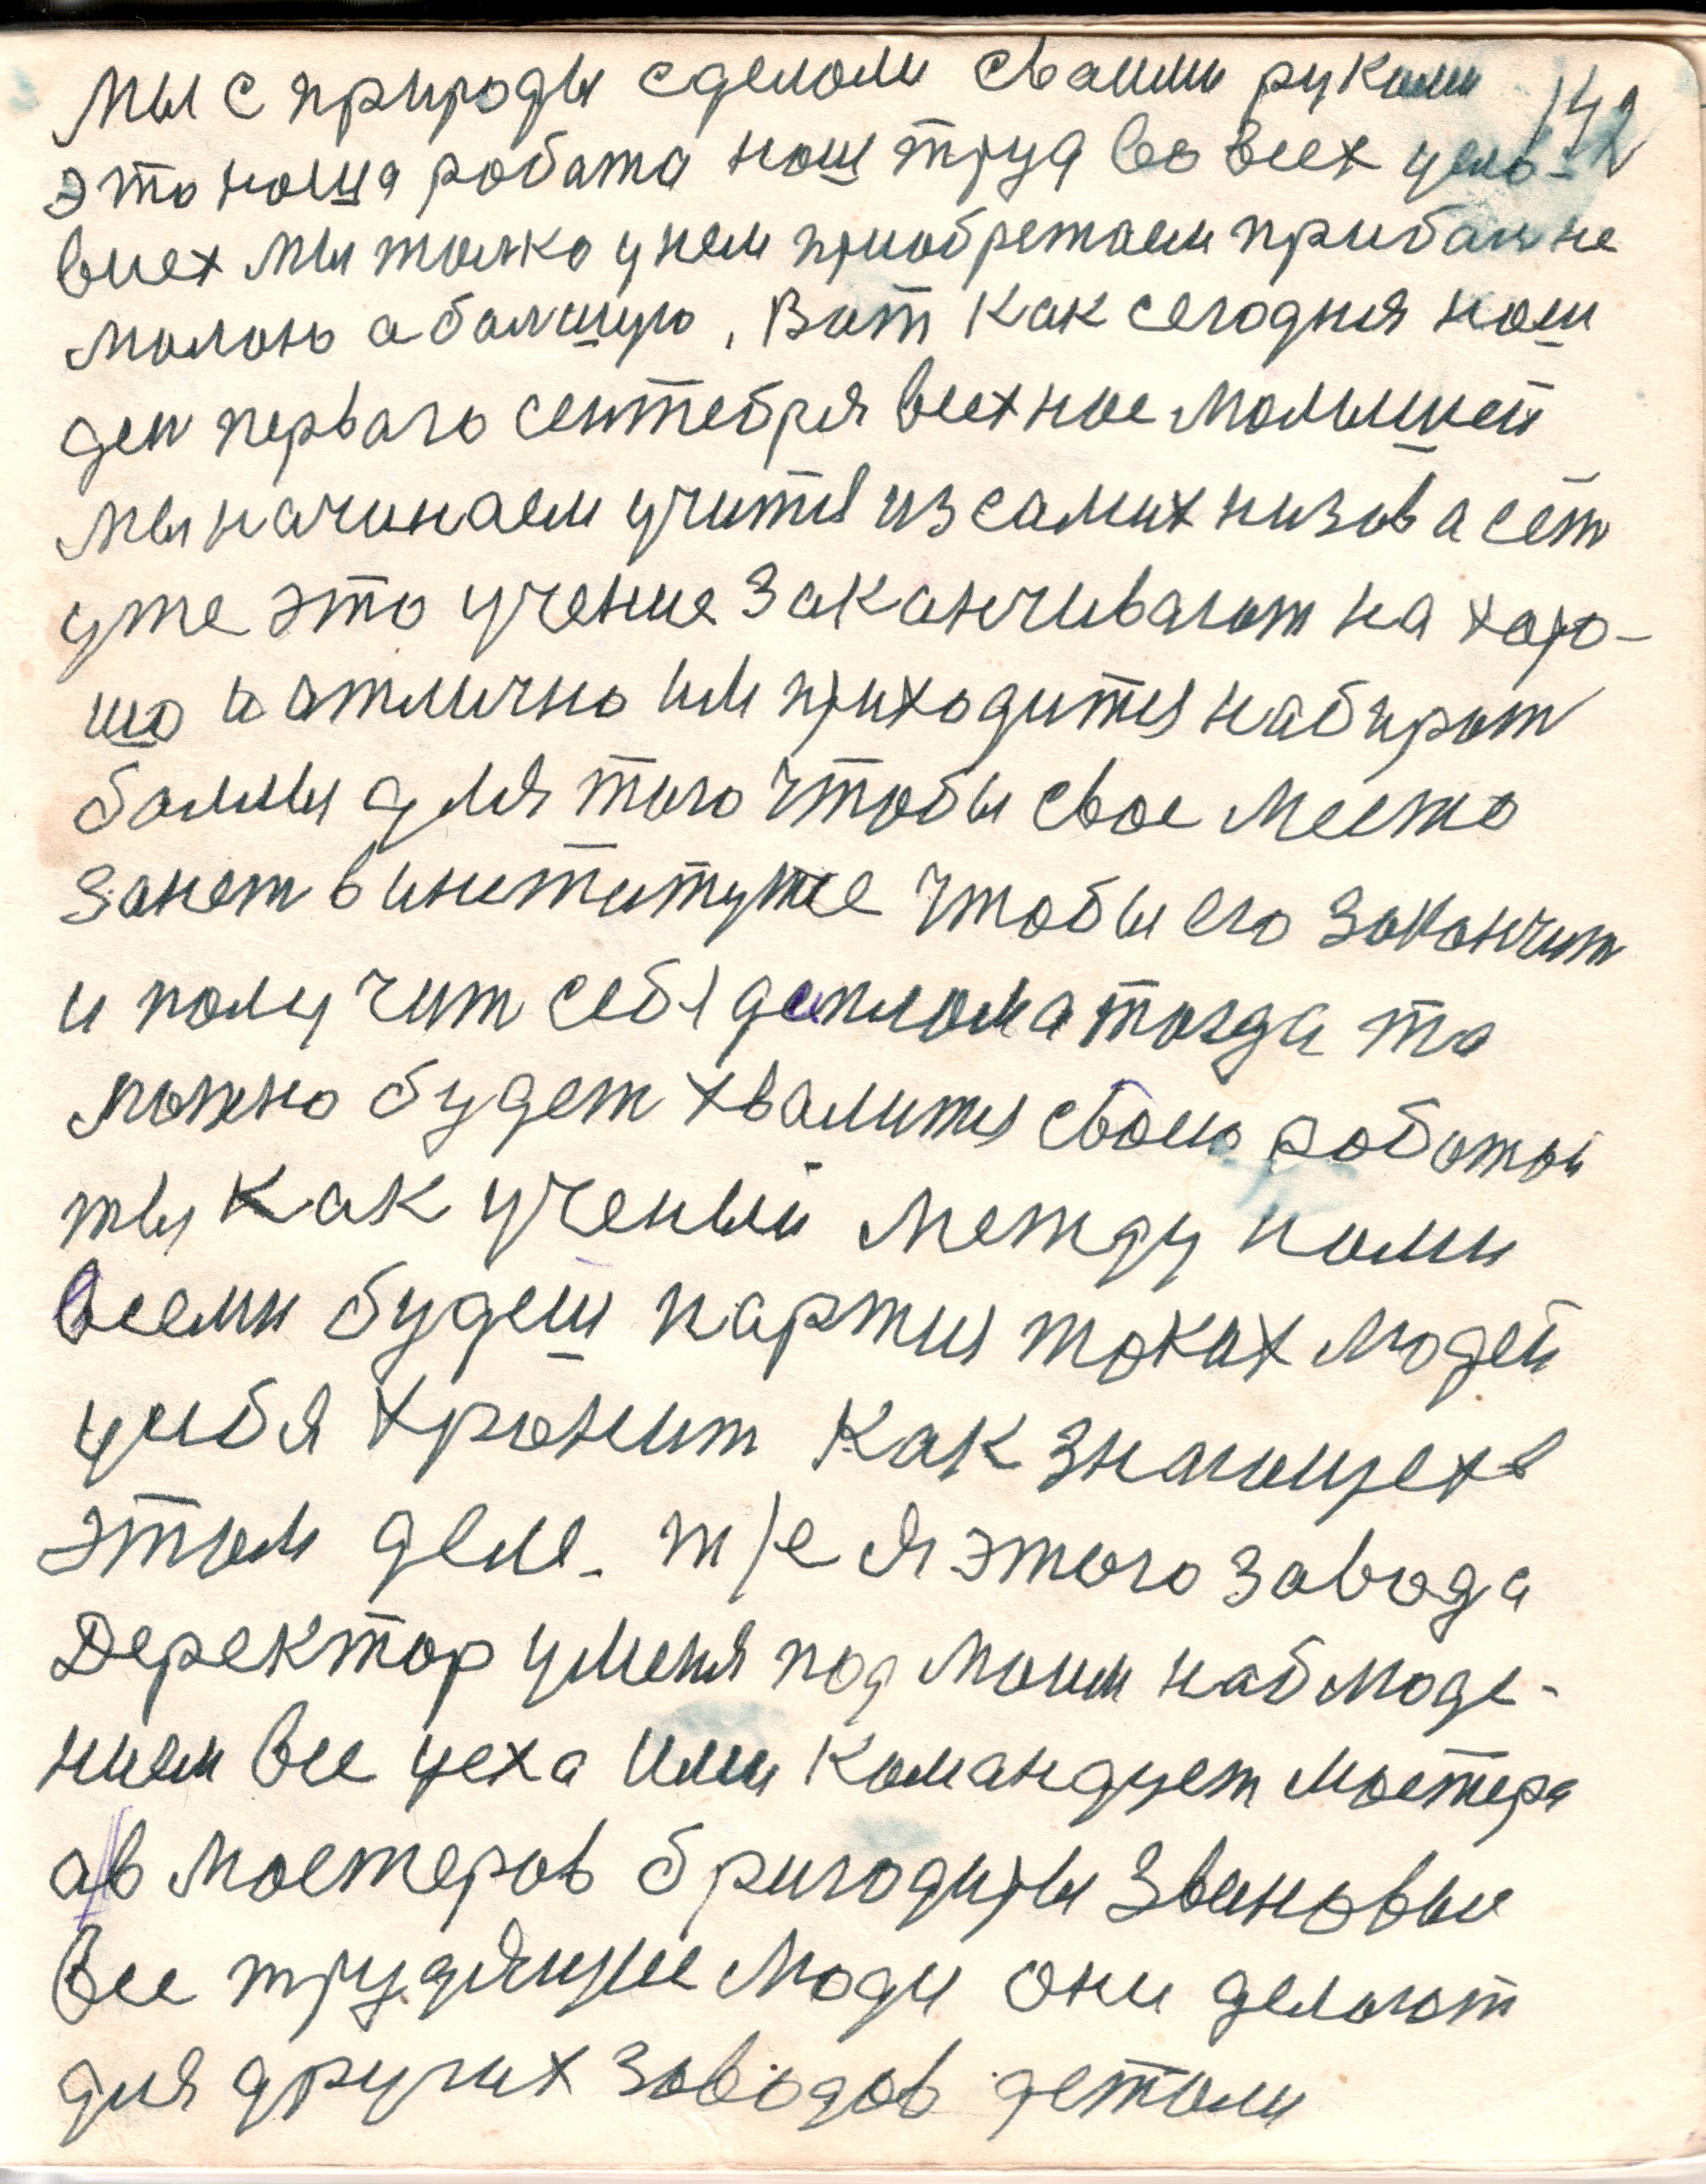 142
мы с природы сделали сваими руками
это наша работа наш труд во всех усло-
виех мы толко у нем приобретаем прибал не
малою а балшую, Вот как сегодня наш
ден перваго сентебря всех нас малышей
мы начинаем учится из самих низов а ест
уже это учение заканчивают на харо-
шо и атлично им приходится набират
баллы для того чтобы свое место
занет в институте чтобы его закончит
и получит себя деплома тогда то
можно будет хвалится своею работой
ты как ученый между нами
всеми будеш партия таких людей
у себя хронит как знающех в
этом деле. т/е я этого завода
Деректор у меня под моим наблюде-
нием все цеха ими командует мастера
а в мастеров бригодиры звеновые
все трудящие люди они делают
для других заводов детали